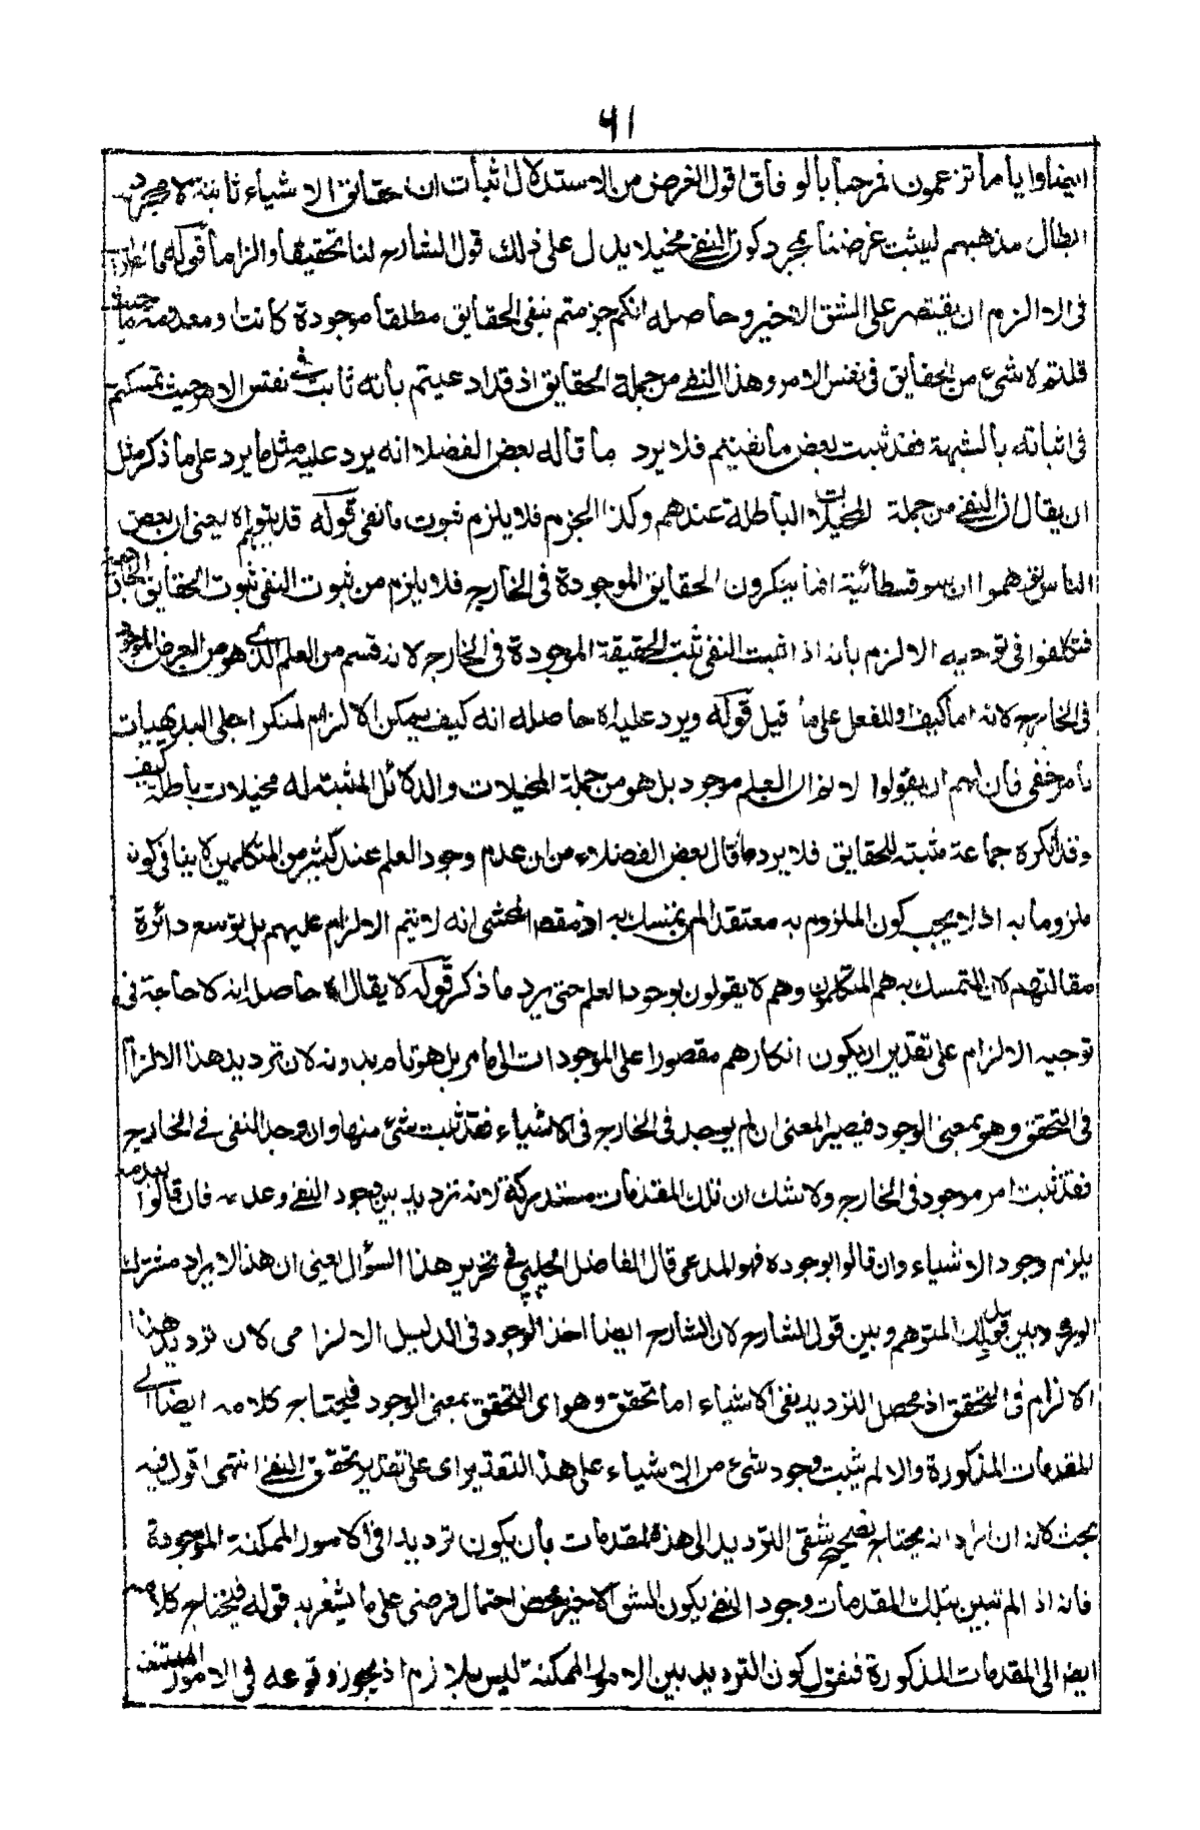 ٦١
ايضا وايا ما تزعمون فمرحبا بالوفاق اقول الغرض من الاستدلال اثبات ان حقائق الاشياء ثابتة لا مجرد
ابطال مذهبهم ليثبت غرضنا بمجرد كون النفي مخيلا يدل على ذلك قول الشارح لنا تحقيقا والزاما قوله فا
فى الالزام ان يقتصر على الشق الاخير وحاصله انكم جزمتم بنفى الحقايق مطلقا موجودة كانت او معدومة حيث
قلتم لا شئ من الحقايق فى نفس الامر وهذا النفى من جملة الحقايق اذ قد ادعيتم بانه ثابت فى نفس الامر حيث تمسكتم
فى اثباته بالشبهة فقد ثبت بعض ما نفيتم فلا يرد ما قاله بعض الفضلاء انه يرد عليه مثل ما يرد على ما ذكر مثل
ان يقال ان النفى من جملة المخيلات الباطلة عندهم وكذا الجزم فلا يلزم ثبوت ما نفى قوله قد يتوهم اه يعنى ان بعض
الناس توهموا ان السوفسطائية انما ينكرون الحقايق الموجودة فى الخارج فلا يلزم من ثبوت النفى ثبوت الحقايق الخارجية
فتكلفوا فى توجيه الالزام بانه اذا ثبت النفى ثبت الحقيقة الموجودة فى الخارج لانه قسم من العلم الذى هو من العرض الموجود
فى الخارج لانه اما كيف او انفعال على ما قيل قوله ويرد عليه اه حاصله انه كيف يمكن الالزام لمنكر اجلى البديهيات
بامر خفى فان لهم ان يقولوا لا نم ان العلم موجود بل هو من جملة المخيلات والدلائل المثبتة له مخيلات باطلة كيف
وقد انكره جماعة مثبتة للحقايق فلا يرد ما قال بعض الفضلاء من ان عدم وجود العلم عند كثير من المتكلمين لا ينافى كون
ملزوما به اذ لا يجب كون الملزوم به معتقدا لمن يتمسك به اذ مقصد المحشى انه لا يتم الالزام عليهم بل توسع دائرة
مقالتهم لان المتمسك به هم المتكلمون وهم لا يقولون بوجود العلم حتى يرد ما ذكر قوله لا يقال اه حاصله انه لا حاجة فى
توجيه الالزام على تقدير ان يكون انكارهم مقصورا على الموجودات الى ما مر بل هو تام بدونه لان ترديد هذا الالزام
فى التحقق وهو بمعنى الوجود فيصير المعنى ان لم يوجد فى الخارج نفى الاشياء فقد ثبت شئ منها وان وجد النفى فى الخارج
فقد ثبت امر موجود فى الخارج ولا شك ان تلك المقدمات مستدركة لانه ترديد بين وجود النفى وعدمه فان قالوا بعدمه
يلزم وجود الاشياء وان قالوا بوجوده فهو المدعى قال الفاضل الجلبى فى تحرير هذا السؤال يعنى ان هذا الايراد مشترك
الورود بين قول ذلك المتوهم وبين قول الشارح لان الشارح ايضا اخذ الوجود فى الدليل الالزامى لان ترديد هذا
الالزام فى التحقق اذ محصل الترديد نفى الاشياء اما تحقق وهو اى التحقق بمعنى الوجود فيحتاج كلامه ايضا الى
المقدمات المذكورة والا لم يثبت وجود شئ من الاشياء على هذا التقدير اى على تقدير تحقق النفى انتهى اقول فيه
بحث لانه ان اراد انه يحتاج تصحيح شقى الترديد الى هذه المقدمات بان يكون ترديدا فى الامور الممكنة الموجودة
فانه اذا لم تتبين بتلك المقدمات وجود النفى يكون الشق الاخير محض احتمال فرضى على ما يشعر به قوله فيحتاج كلامه
ايضا الى المقدمات المذكورة فنقول كون الترديد بين الامور الممكنة ليس بلازم اذ يجوز وقوعه فى الامور